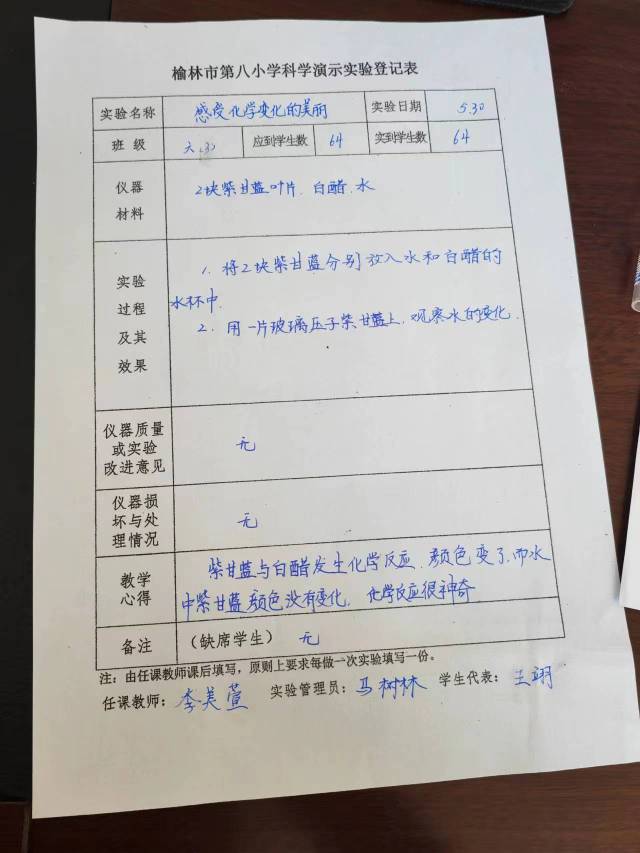 榆林市第八小学科学演示实验登记表
实验名称 感受化学变化的美丽 实验日期 5.30
班 级 六(3) 应到学生数 64 实到学生数 64
仪器
材料
2块紫甘蓝叶片、白醋、水
实验
过程
及其
效果
1、将2块紫甘蓝分别放入水和白醋的
水杯中.
2、用一片玻璃压子紫甘蓝上,观察水的变化.
仪器质量
或实验
改进意见
无
仪器损
坏与处
理情况
无
教学
心得
紫甘蓝与白醋发生化学反应、颜色变了,而水
中紫甘蓝颜色没有变化, 化学反应很神奇
备注 (缺席学生) 无
注:由任课教师课后填写,原则上要求每做一次实验填写一份。
任课教师: 李美萱 实验管理员: 马树林 学生代表: 王翊